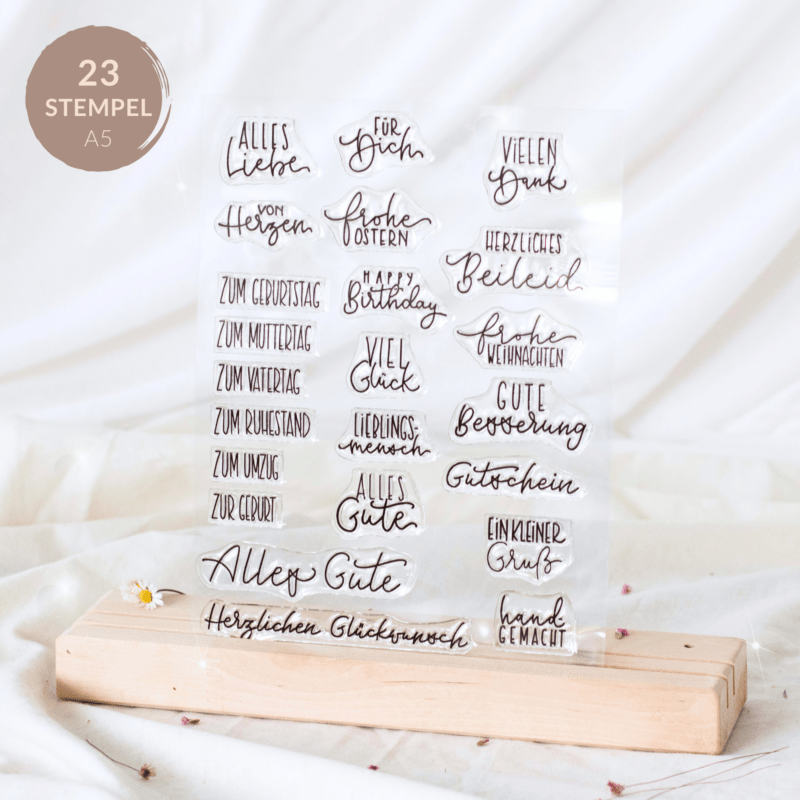 23
STEMPEL
A5
ALLES
Liebe
FÜR
Dich
VIELEN
Dank
VON
Herzen
frohe
OSTERN
HERZLICHES
Beileid
ZUM GEBURTSTAG
HAPPY
Birthday
ZUM MUTTERTAG
frohe
WEIHNACHTEN
ZUM VATERTAG
VIEL
Glück
GUTE
Besserung
ZUM RUHESTAND
LIEBLINGS-
mensch
ZUM UMZUG
Gutschein
ZUR GEBURT
ALLES
Gute
EIN KLEINER
Gruß
Alles Gute
Herzlichen Glückwunsch
hand-
GEMACHT